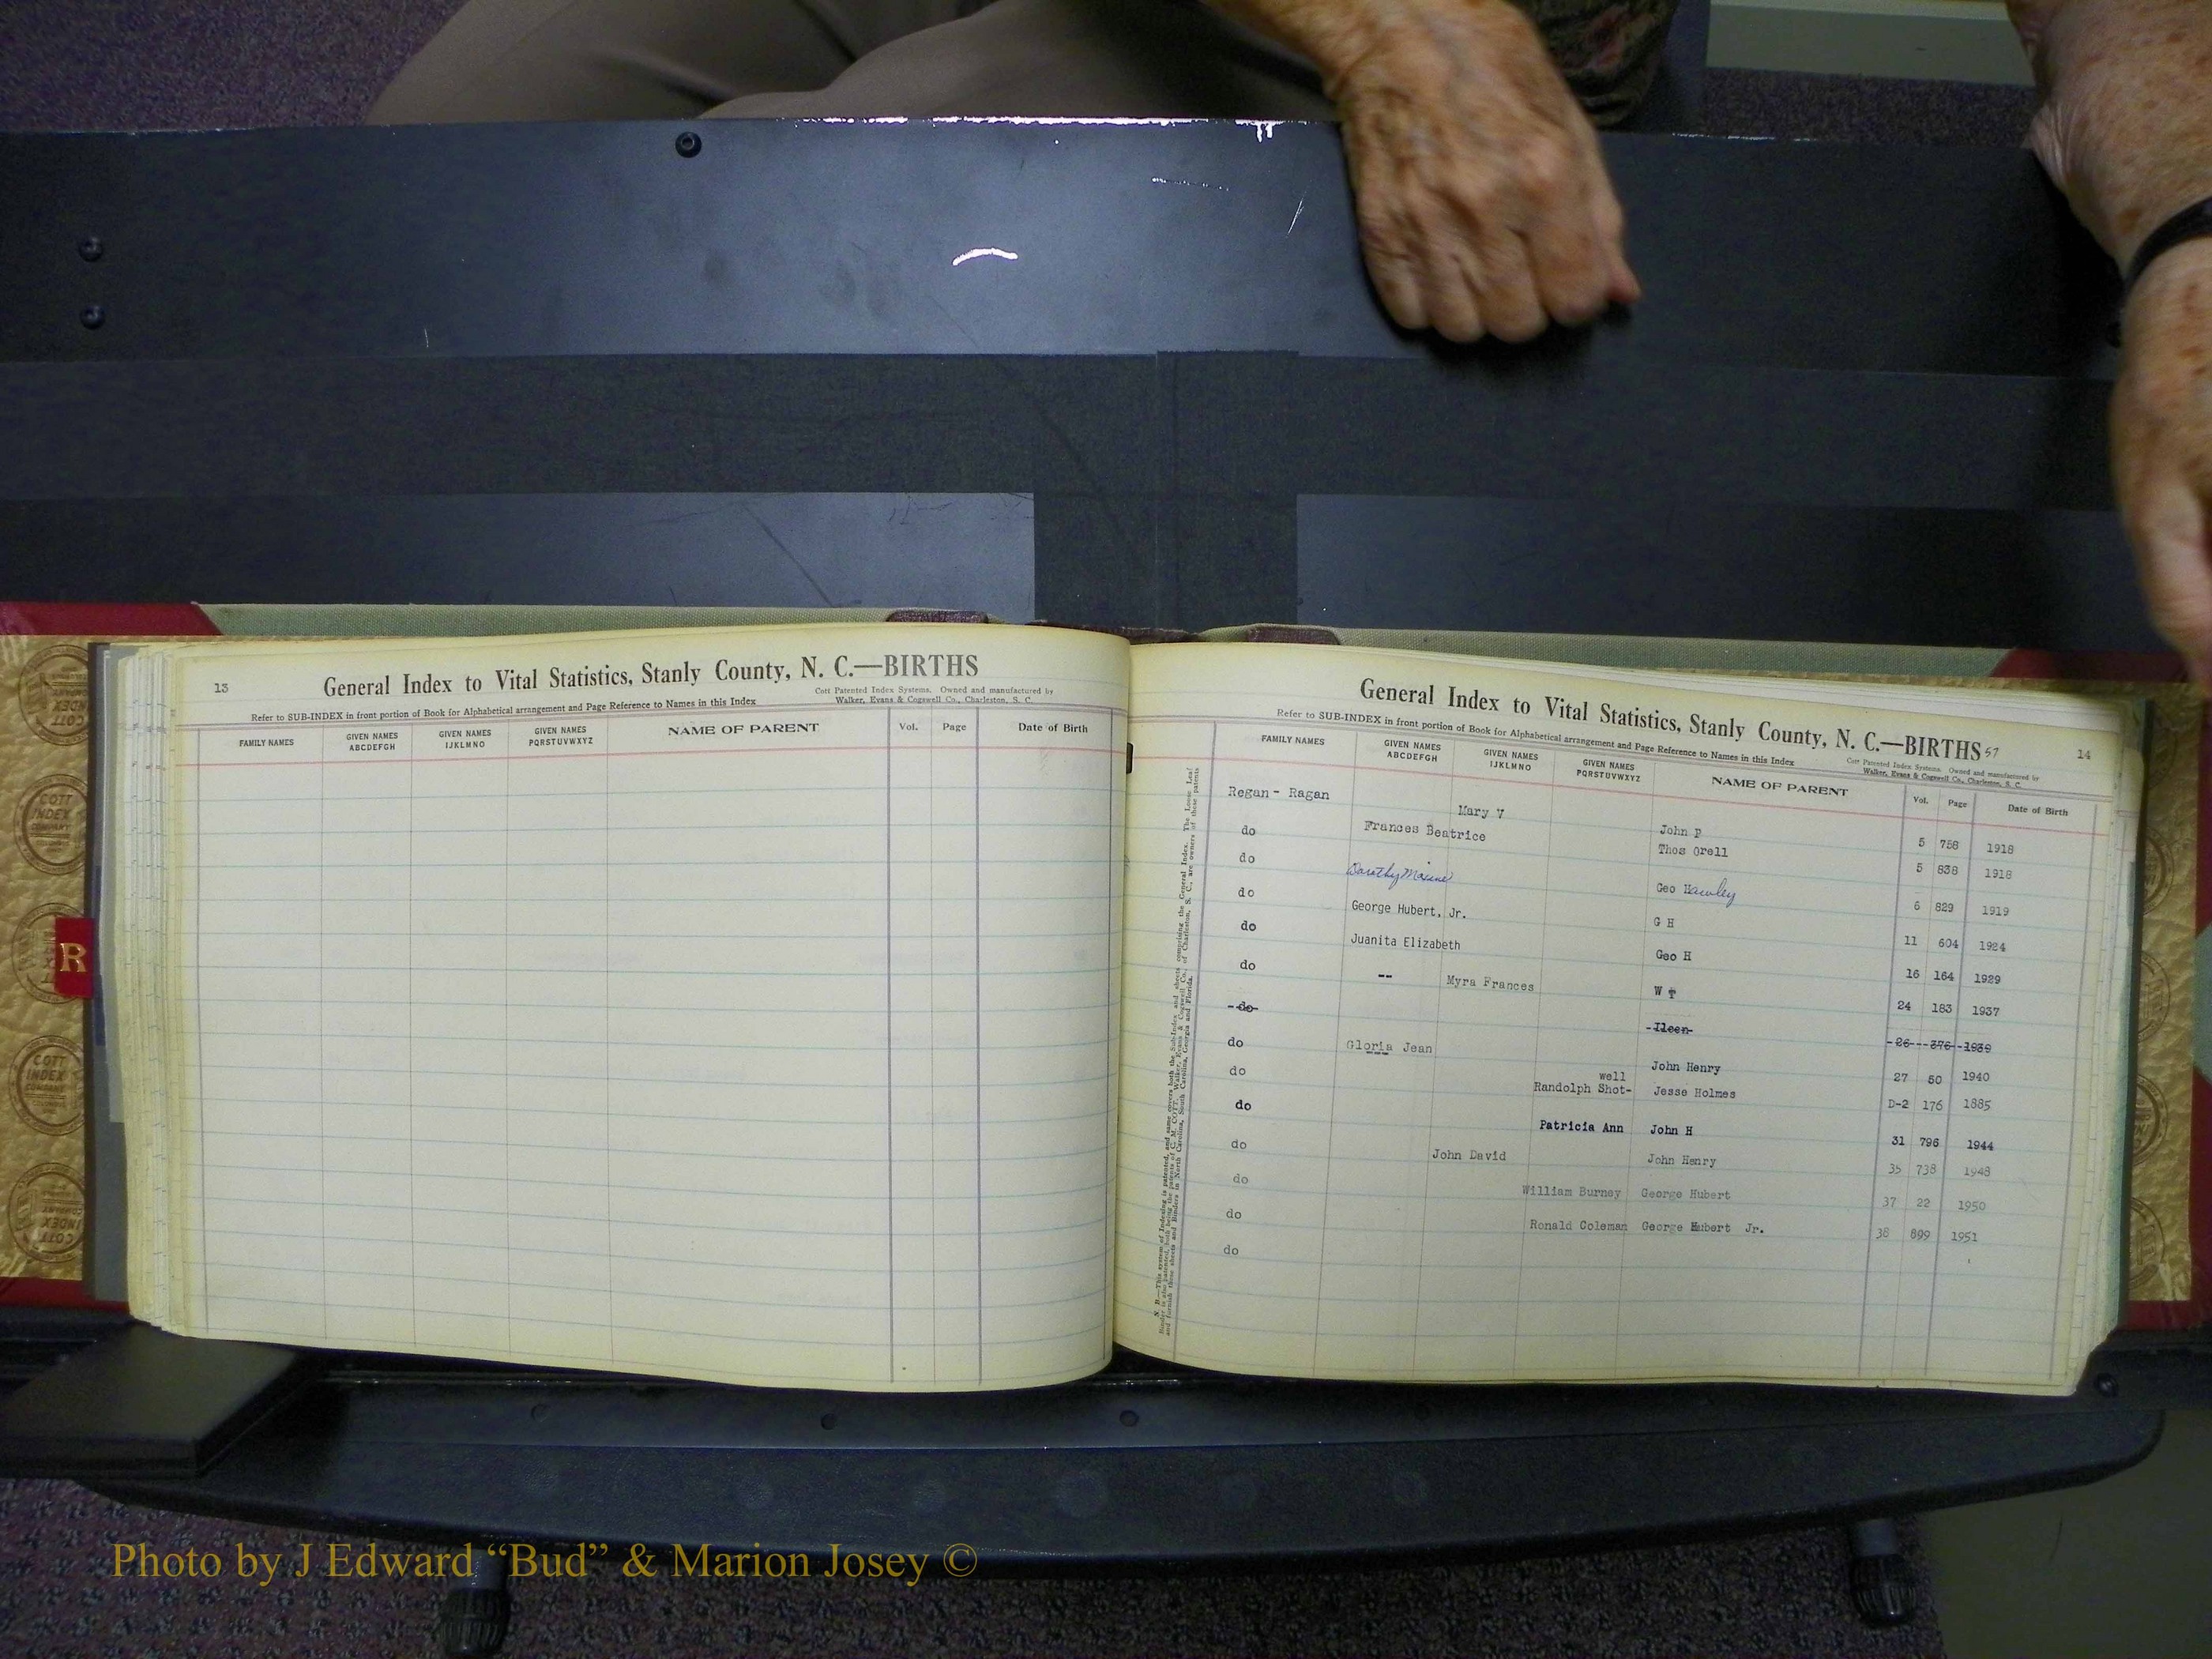 13
General Index to Vital Statistics, Stanly County, N. C.—BIRTHS
Cott Patented Index Systems. Owned and manufactured by
Refer to SUB-INDEX in front portion of Book for Alphabetical arrangement and Page Reference to Names in this Index
Walker, Evans & Cogswell Co., Charleston, S. C.
FAMILY NAMES GIVEN NAMES ABCDEFGH GIVEN NAMES IJKLMNO GIVEN NAMES PQRSTUVWXYZ NAME OF PARENT Vol. Page Date of Birth
R
COTT INDEX COMPANY
General Index to Vital Statistics, Stanly County, N. C.—BIRTHS 57 14
Refer to SUB-INDEX in front portion of Book for Alphabetical arrangement and Page Reference to Names in this Index
Cott Patented Index Systems. Owned and manufactured by
Walker, Evans & Cogswell Co., Charleston, S. C.
FAMILY NAMES GIVEN NAMES ABCDEFGH GIVEN NAMES IJKLMNO GIVEN NAMES PQRSTUVWXYZ NAME OF PARENT Vol. Page Date of Birth
Regan - Ragan Mary V John P 5 758 1918
do Frances Beatrice Thos Orell 5 838 1918
do Dorothy Maxine Geo Hawley 6 829 1919
do George Hubert, Jr. G H 11 604 1924
do Juanita Elizabeth Geo H 16 164 1929
do -- Myra Frances W T 24 183 1937
-do- -Ileen- -26---376--1939
do Gloria Jean John Henry 27 50 1940
do Randolph Shot-well Jesse Holmes D-2 176 1885
do Patricia Ann John H 31 796 1944
do John David John Henry 35 738 1948
do William Burney George Hubert 37 22 1950
do Ronald Coleman George Hubert Jr. 38 899 1951
do
N. B.—This system of Indexing is patented, and same covers both the Sub-Index and sheets comprising the General Index. The Loose Leaf
Photo by J Edward “Bud” & Marion Josey ©